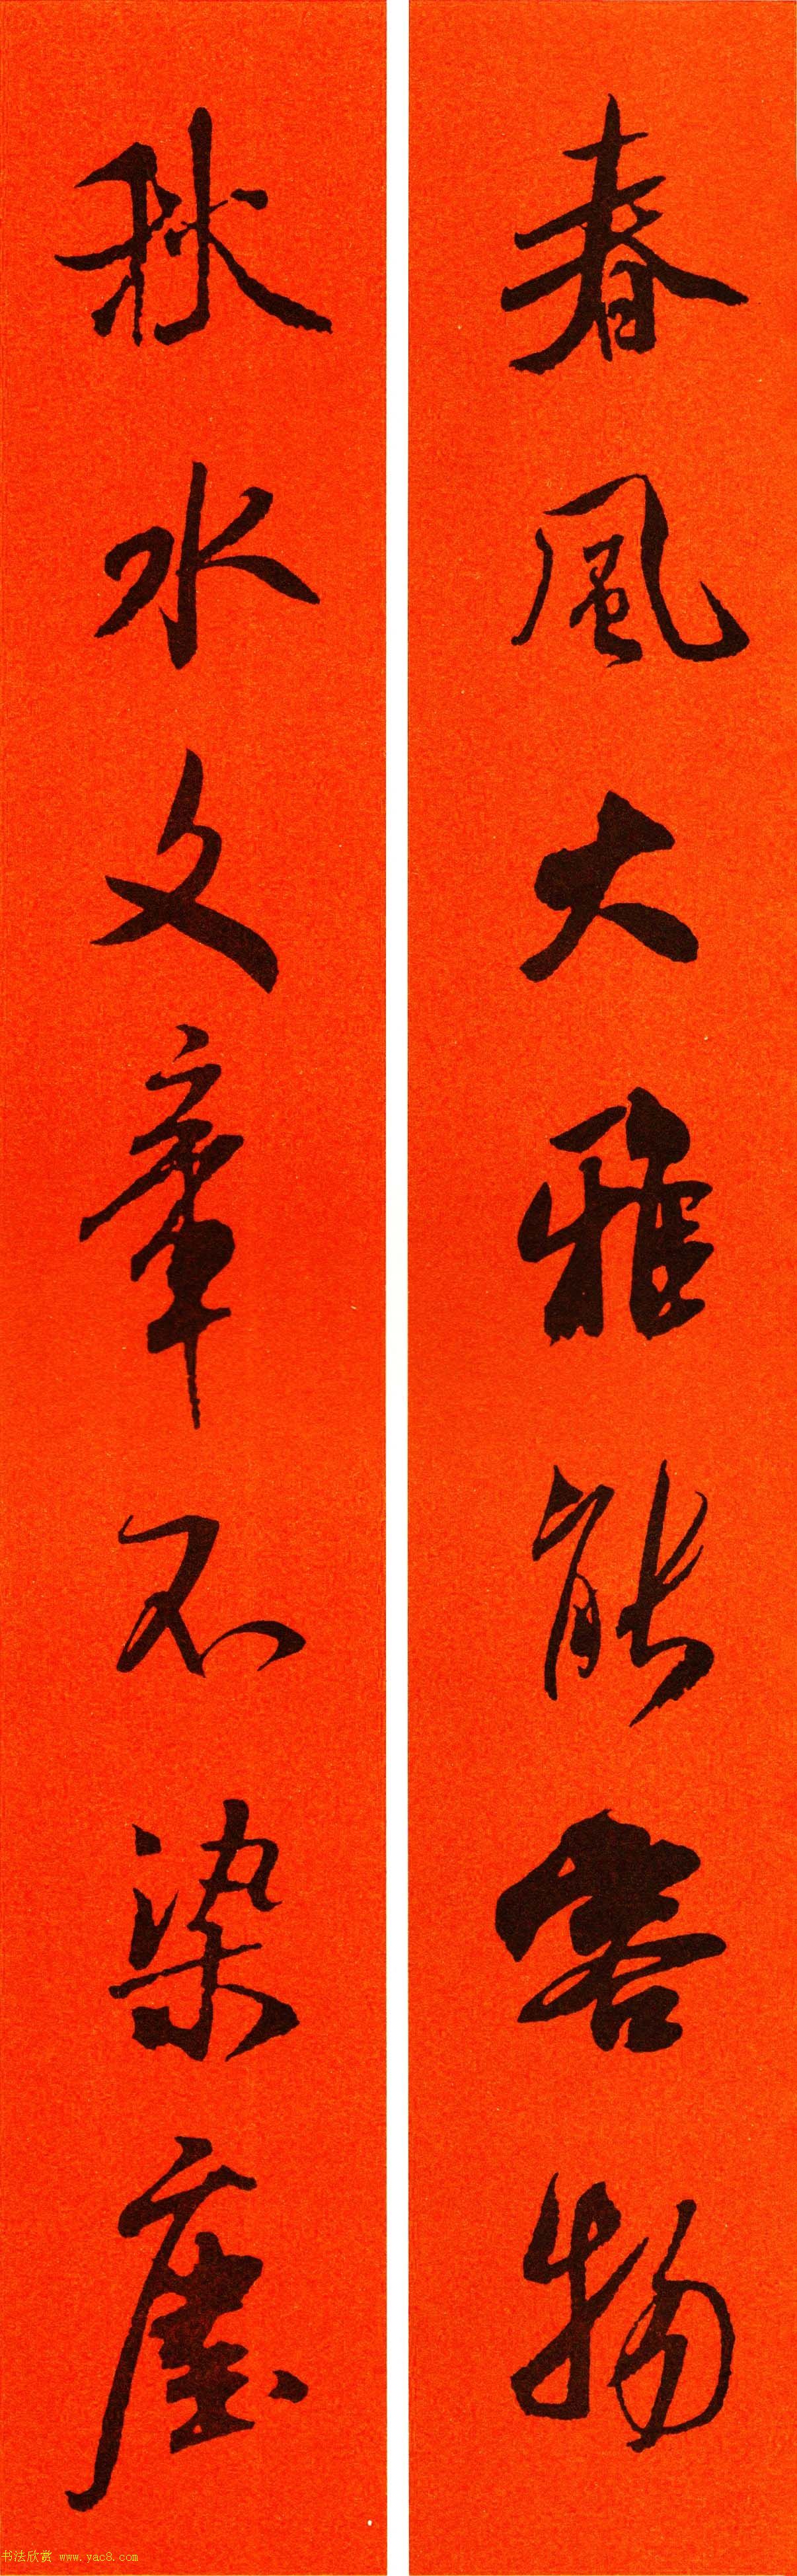 春風大雅能容物
秋水文章不染塵
书法欣赏 www.yac8.com